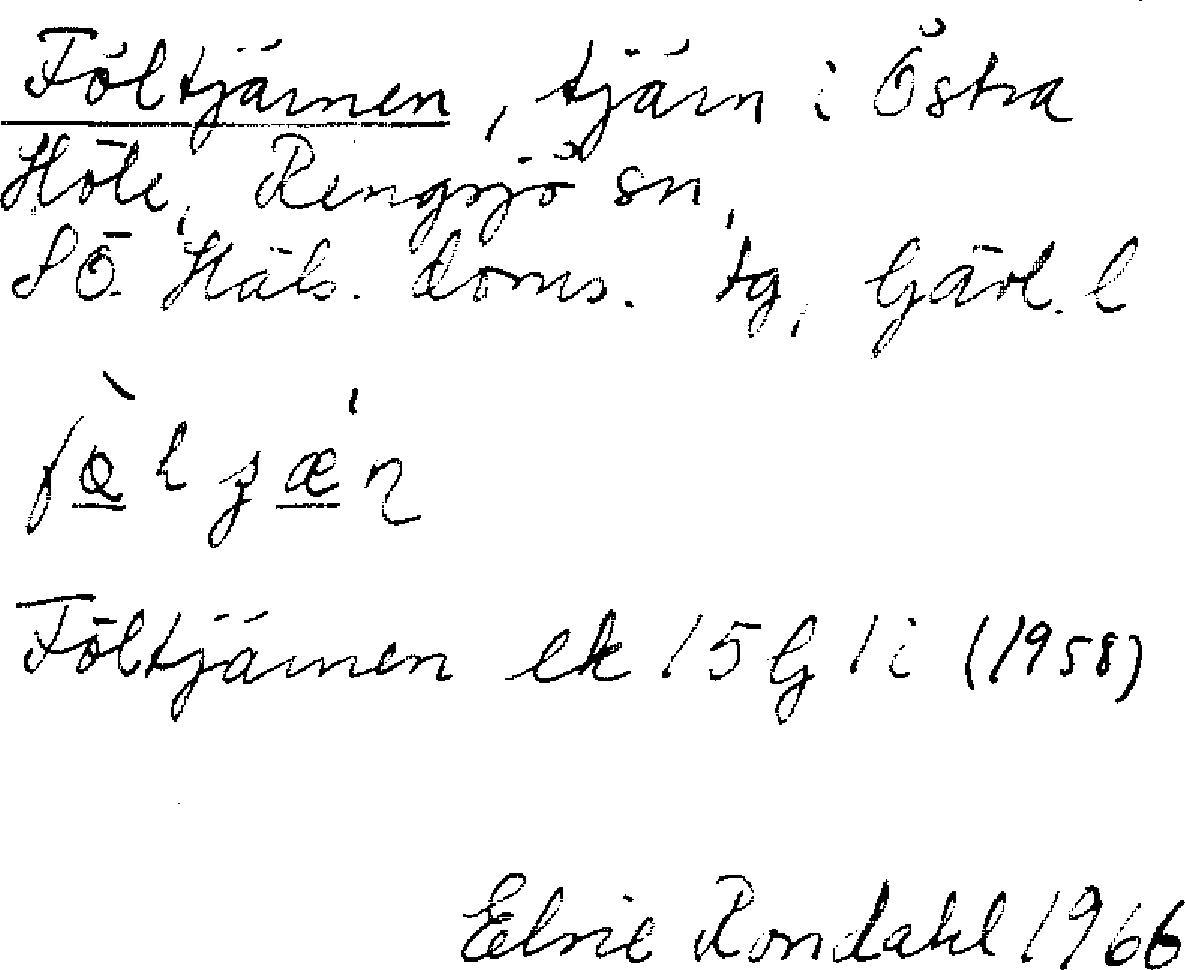 Föltjärnen, tjärn i Östra
Höle, Rengsjö sn,
SÖ Häls. doms. tg, Gävl. l
Föltjärnen ek 15G 1i (1958)
Elsie Rondahl 1966